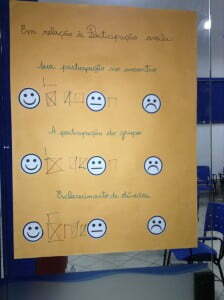 Em relação à Participação avalie
Sua participação no encontro
A participação do grupo
Esclarecimento de dúvidas